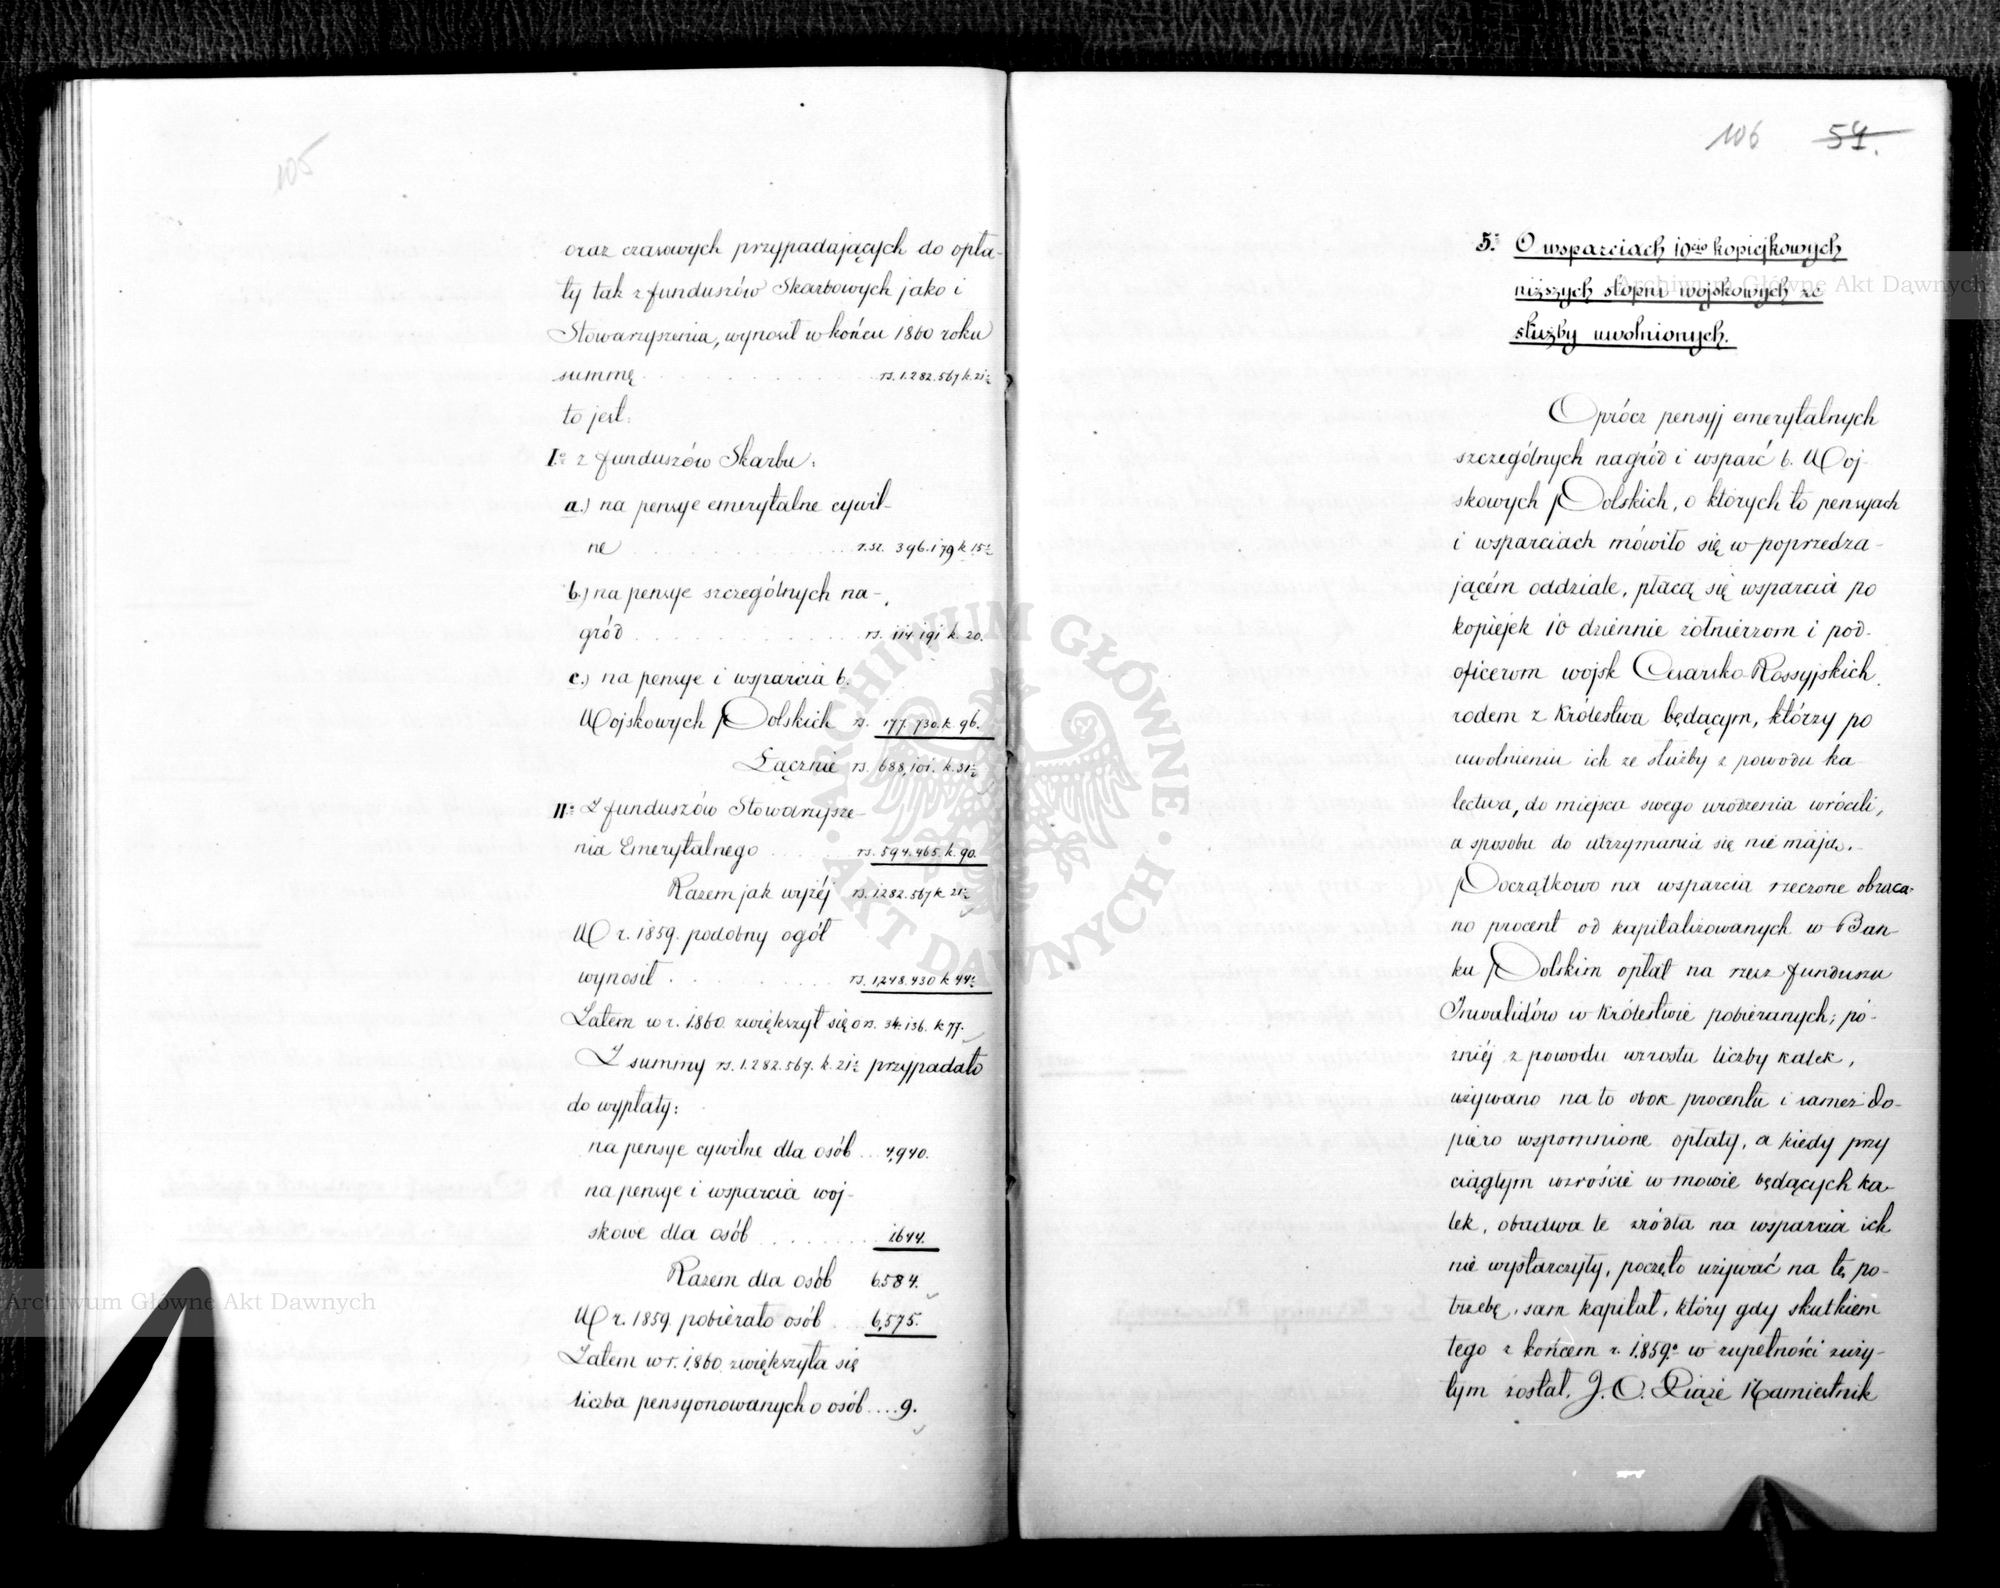 105
oraz czasowych przypadających do opła-
ty tak z funduszów Skarbowych jako i
Stowarzyszenia, wynosił w końcu 1860 roku
summę . . . . . . . . . . rs. 1.282.567 k. 21½
to jest:
I° z funduszów Skarbu:
a.) na pensye emerytalne cywil-
ne . . . . . . . . . . r.sr. 396.179 k. 15½
b.) na pensye szczególnych na-
gród . . . . . . . . . . rs. 114.191 k. 20.
c.) na pensye i wsparcia b.
Wojskowych Polskich rs. 177.730. k. 96.
Łącznie rs. 688,101. k. 31½
II° Z funduszów Stowarzysze-
nia Emerytalnego . . . . rs. 594.465. k. 90.
Razem jak wyżej rs. 1.282.567 k. 21½
W r. 1859. podobny ogół
wynosił . . . . . . . . . . rs. 1,248.430 k. 44½
Zatem w r. 1860. zwiększył się o rs. 34.136. k. 77.
Z summy rs. 1.282.567. k. 21½ przypadało
do wypłaty:
na pensye cywilne dla osób . . 4,940.
na pensye i wsparcia woj-
skowe dla osób . . . . . . . 1644.
Razem dla osób 6584.
W r. 1859. pobierało osób . . . 6,575.
Zatem w r. 1860. zwiększyła się
liczba pensyonowanych o osób . . . . 9.
106 54.
5° O wsparciach 10cio kopiejkowych
niższych stopni wojskowych ze
służby uwolnionych.
Oprócz pensyj emerytalnych
szczególnych nagród i wsparć b. Woj-
skowych Polskich, o których to pensyach
i wsparciach mówiło się w poprzedza-
jącém oddziale, płacą się wsparcia po
kopiejek 10 dziennie żołnierzom i pod-
oficerom wojsk Cesarsko-Rossyjskich
rodem z Królestwa będącym, którzy po
uwolnieniu ich ze służby z powodu ka-
lectwa, do miejsca swego urodzenia wrócili,
a sposobu do utrzymania się nie mają.
Początkowo na wsparcia rzeczone obraca-
no procent od kapitalizowanych w Ban-
ku Polskim opłat na rzecz funduszu
Inwalidów w Królestwie pobieranych; pó-
źniéj z powodu wzrostu liczby kalek,
używano na to obok procentu i samez do-
piero wspomnione opłaty, a kiedy przy
ciągłym wzroście w mowie będących ka-
lek, obadwa te źródła na wsparcia ich
nie wystarczyły, poczęto używać na tę po-
trzebę, sam kapitał, który gdy skutkiem
tego z końcem r. 1859° w zupełności zuży-
tym został, J. O. Xiąże Namiestnik
Archiwum Główne Akt Dawnych
Archiwum Główne Akt Dawnych
ARCHIWUM GŁÓWNE · AKT DAWNYCH ·